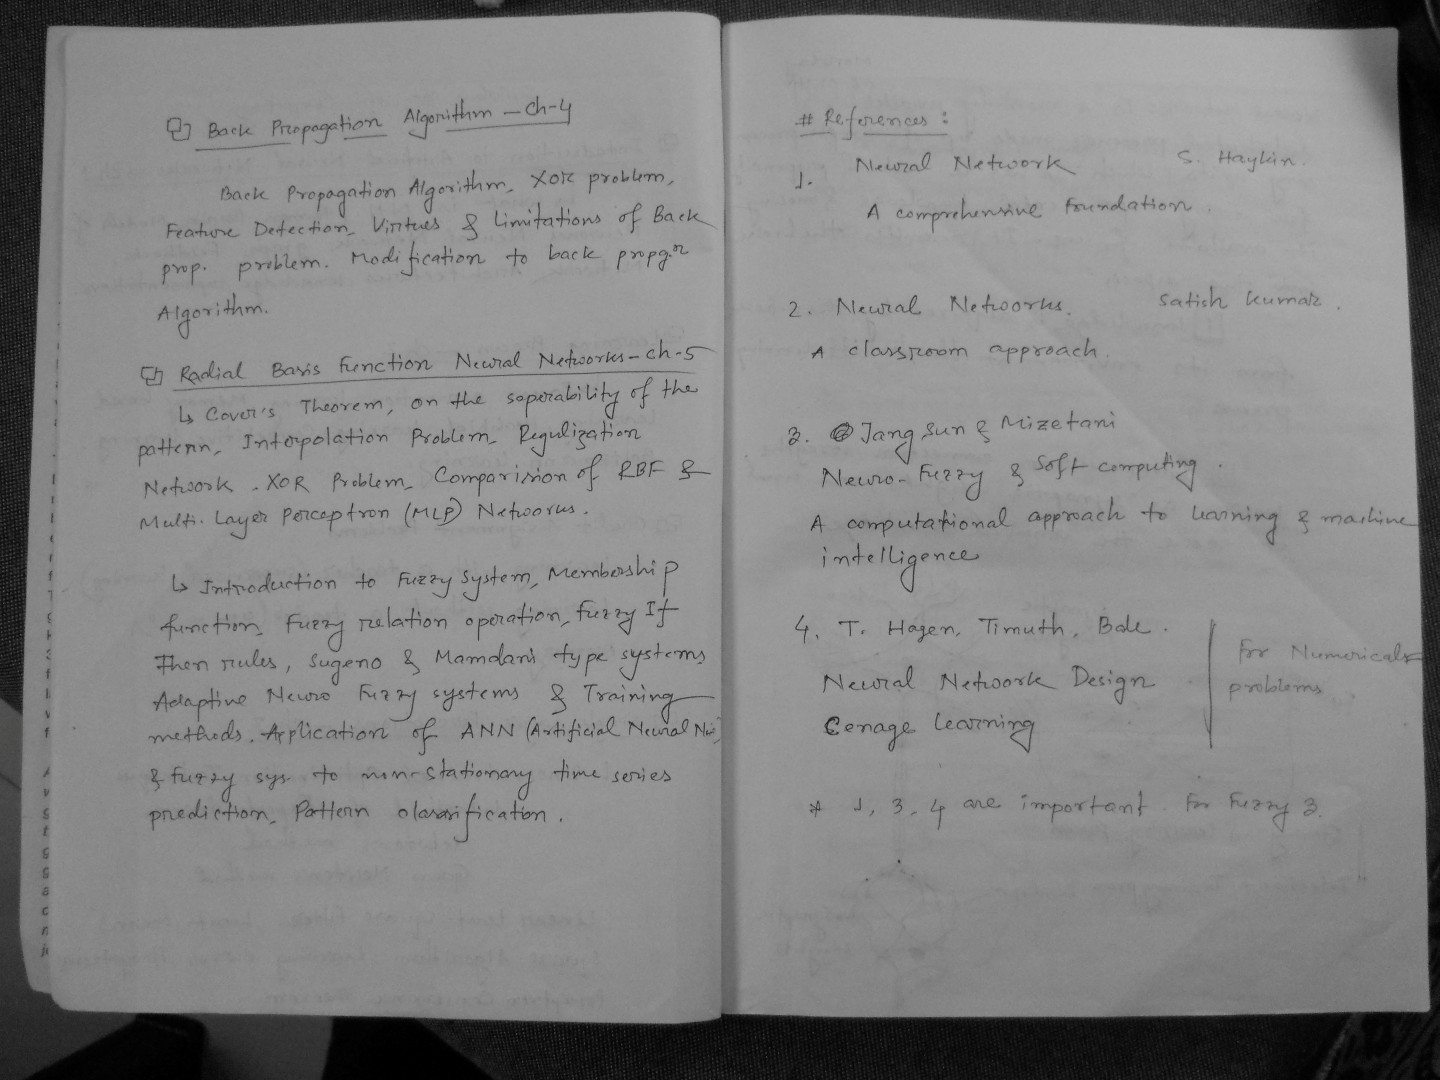 Back Propagation Algorithm - Ch-4
Back Propagation Algorithm, XOR problem,
Feature Detection, Virtues & Limitations of Back
prop. problem. Modification to back propgⁿ
Algorithm.
Radial Basis Function Neural Networks - ch-5
↳ Cover's Theorem, on the saperability of the
pattern, Interpolation Problem, Regulization
Network, XOR Problem, Comparision of RBF &
Multi. Layer Perceptron (MLP) Networks.
↳ Introduction to Fuzzy System, Membership
function, Fuzzy relation operation, Fuzzy If
Then rules, Sugeno & Mamdani type systems
Adaptive Neuro Fuzzy systems & Training
methods. Application of ANN (Artificial Neural
& fuzzy sys. to non-stationary time series
prediction, Pattern classification.
# References:
1. Neural Network S. Haykin.
A comprehensive foundation.
2. Neural Networks. Satish Kumar.
A classroom approach.
3. Jang Sun & Mizetani
Neuro-Fuzzy & Soft computing.
A computational approach to learning & machine
intelligence
4. T. Hagen, Timuth, Bale.
Neural Network Design
Cenage learning
For Numericals
problems
* 1, 3, 4 are important. For Fuzzy 3.